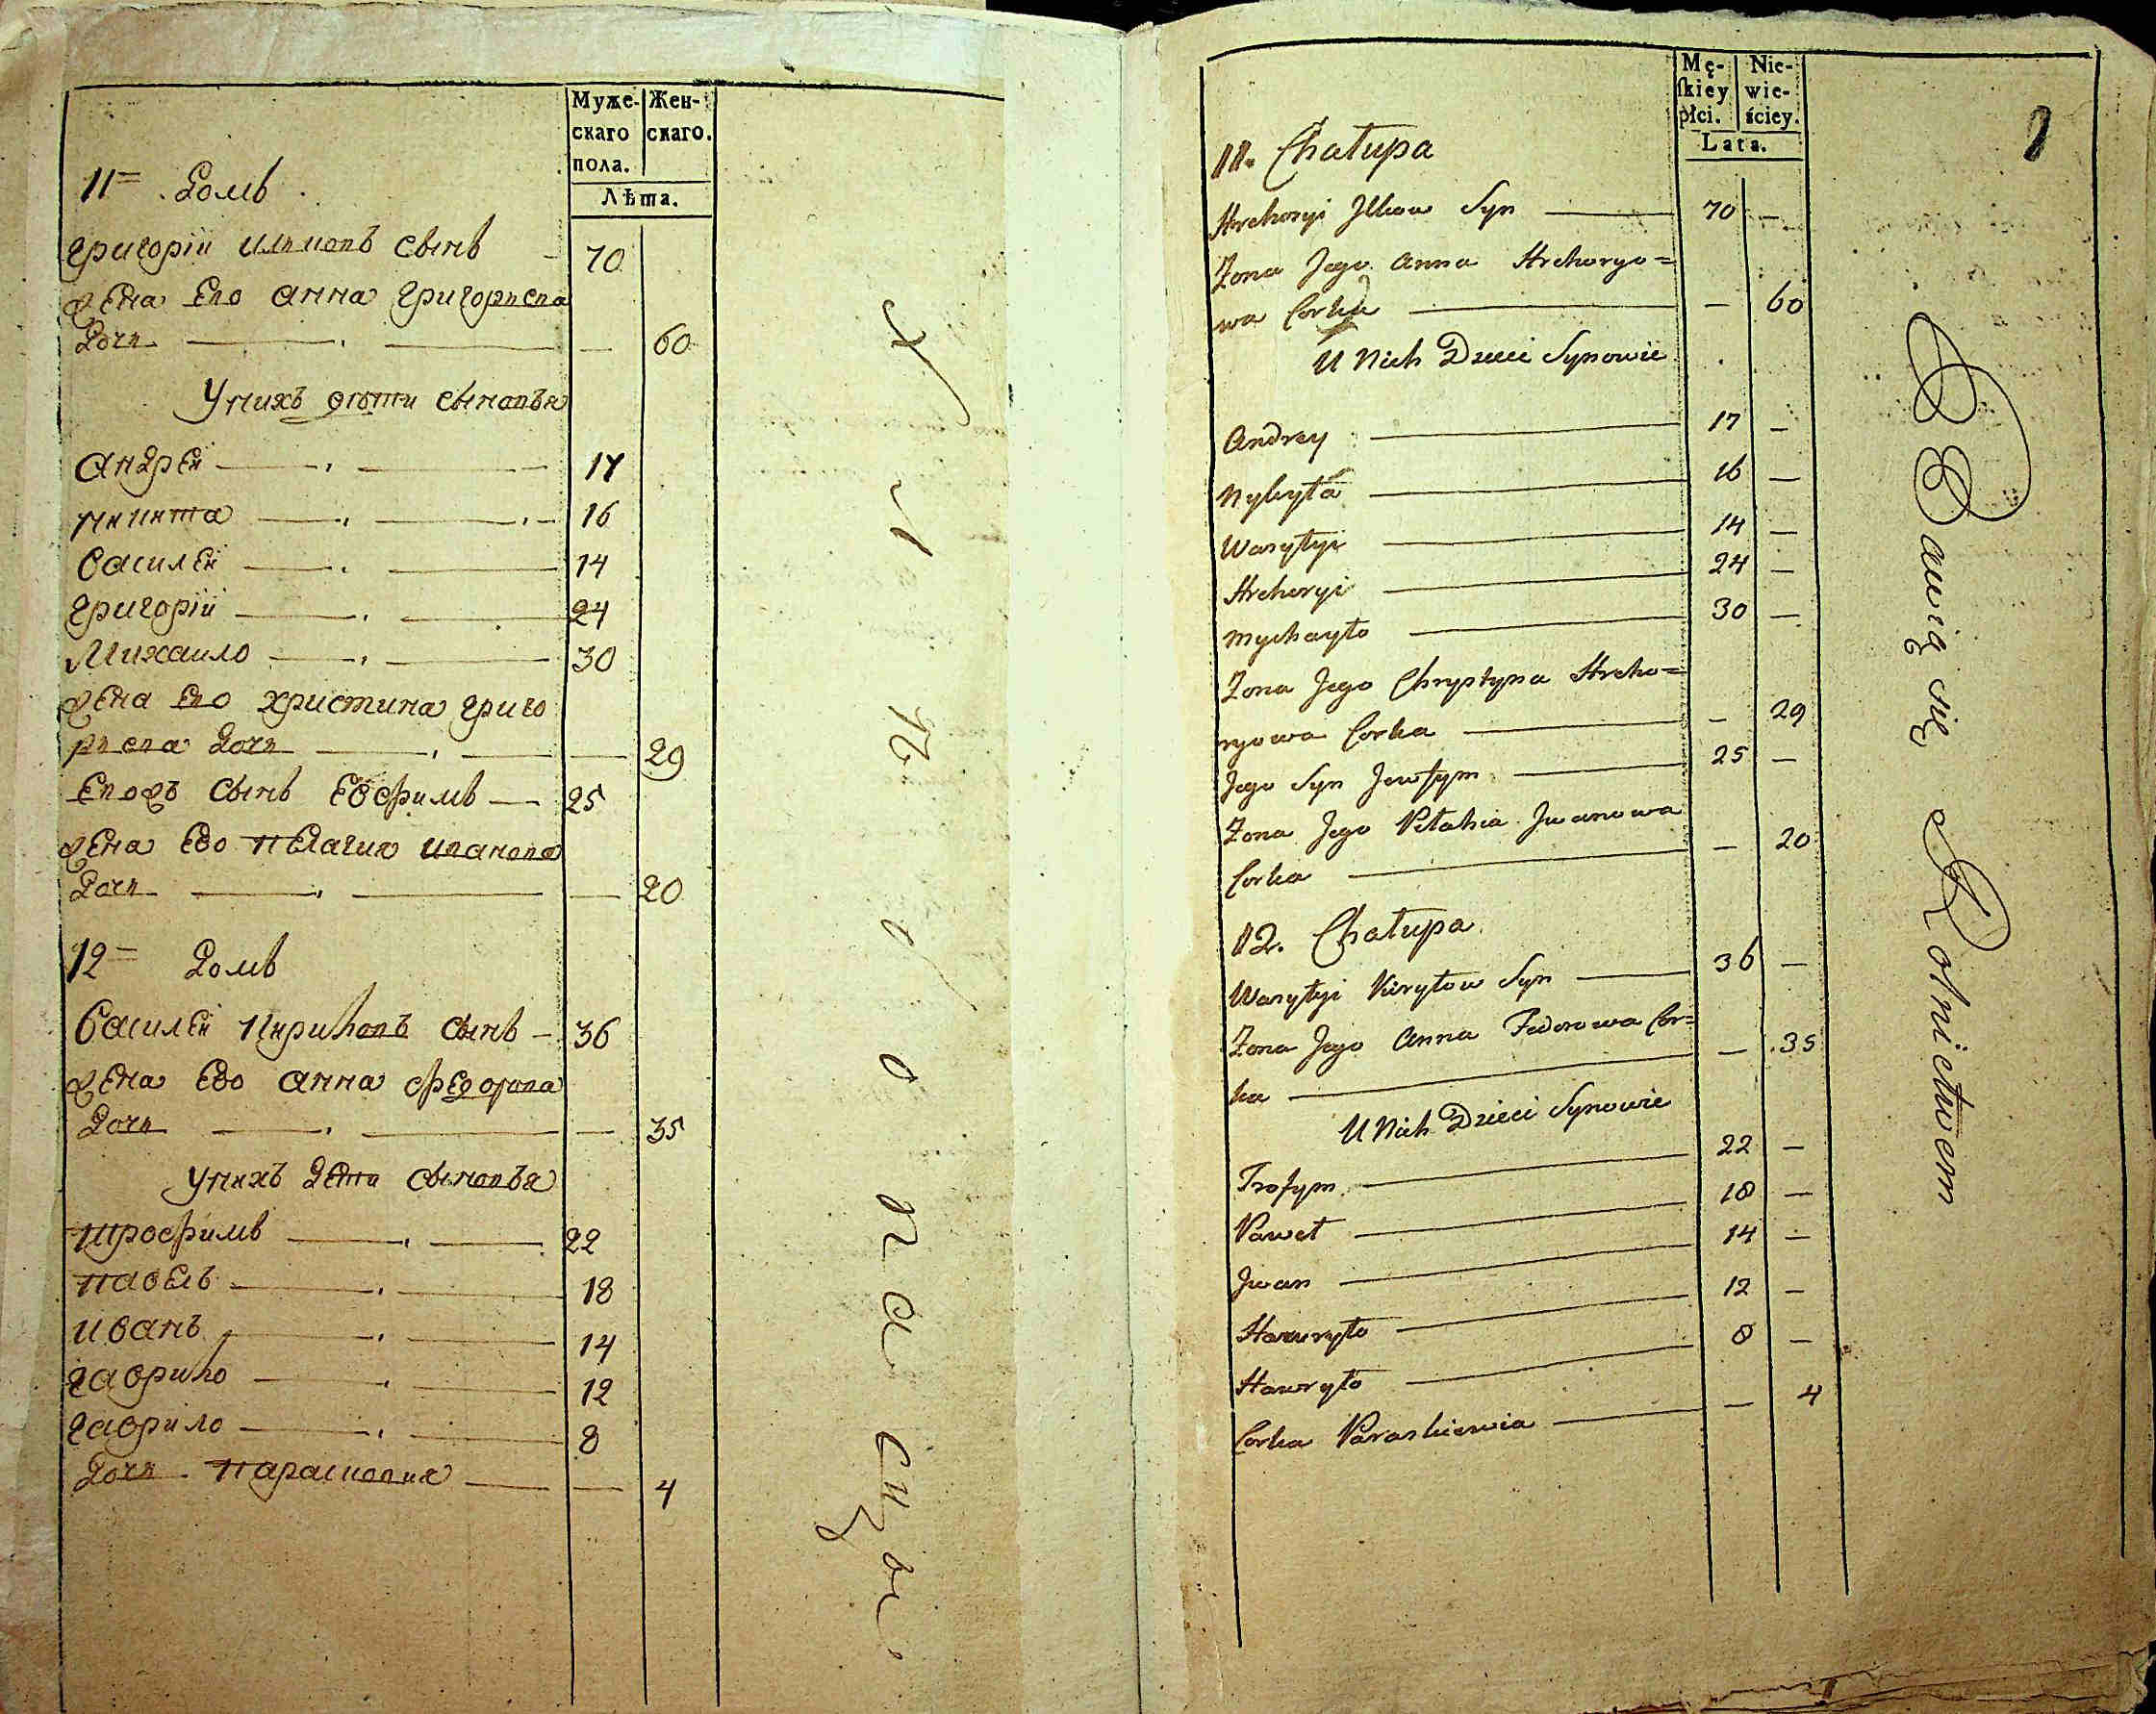 Муже-
скаго
пола.
Жен-
скаго.
Лѣта.
11= Домъ
Григорій Илковъ сынъ 70
жена Ево анна Григорьева
Дочь — — — 60
У нихъ дѣти сыновья
андрей — — 17
никита — — 16
василей — — 14
григорій — — 24
Михаило — — 30
жена Ево христина григо
рьева Дочь — — — 29
Евожъ сынъ Евфимъ — 25
жена Ево пелагия иванова
Дочь — — — 20
12= Домъ
Василей Кириловъ сынъ — 36
жена Ево анна федорова
Дочь — — — 35
У нихъ Дети сыновья
трофимъ — — 22
павелъ — — 18
иванъ — — 14
гаврило — — 12
гаврило — — 8
Дочь парасковия — — 4
Mę-
skiey
płci.
Nie-
wie-
ściey.
Lata.
11. Chałupa
Hrehoryi Jlkow Syn — 70 —
Zona Jego Anna Hrehoryo=
wa Corka — — 60
U Nich Dzieci Synowie
Andrey — 17 —
Nykyta — 16 —
Wasylyi — 14 —
Hrehoryi — 24 —
Mychayło — 30 —
Zona Jego Chrystyna Hreho=
ryowa Corka — — 29
Jego Syn Jewfym — 25 —
Zona Jego Pełahia Jwanowa
Corka — — 20
12. Chałupa
Wasylyi Kiryłow Syn — 36 —
Zona Jego Anna Fedorowa Cor=
ka — — 35
U Nich Dzieci Synowie
Trofym — 22 —
Paweł — 18 —
Jwan — 14 —
Hawryło — 12 —
Hawryło — 8 —
Corka Paraskiewia — — 4
Bawią się Rolnictwem